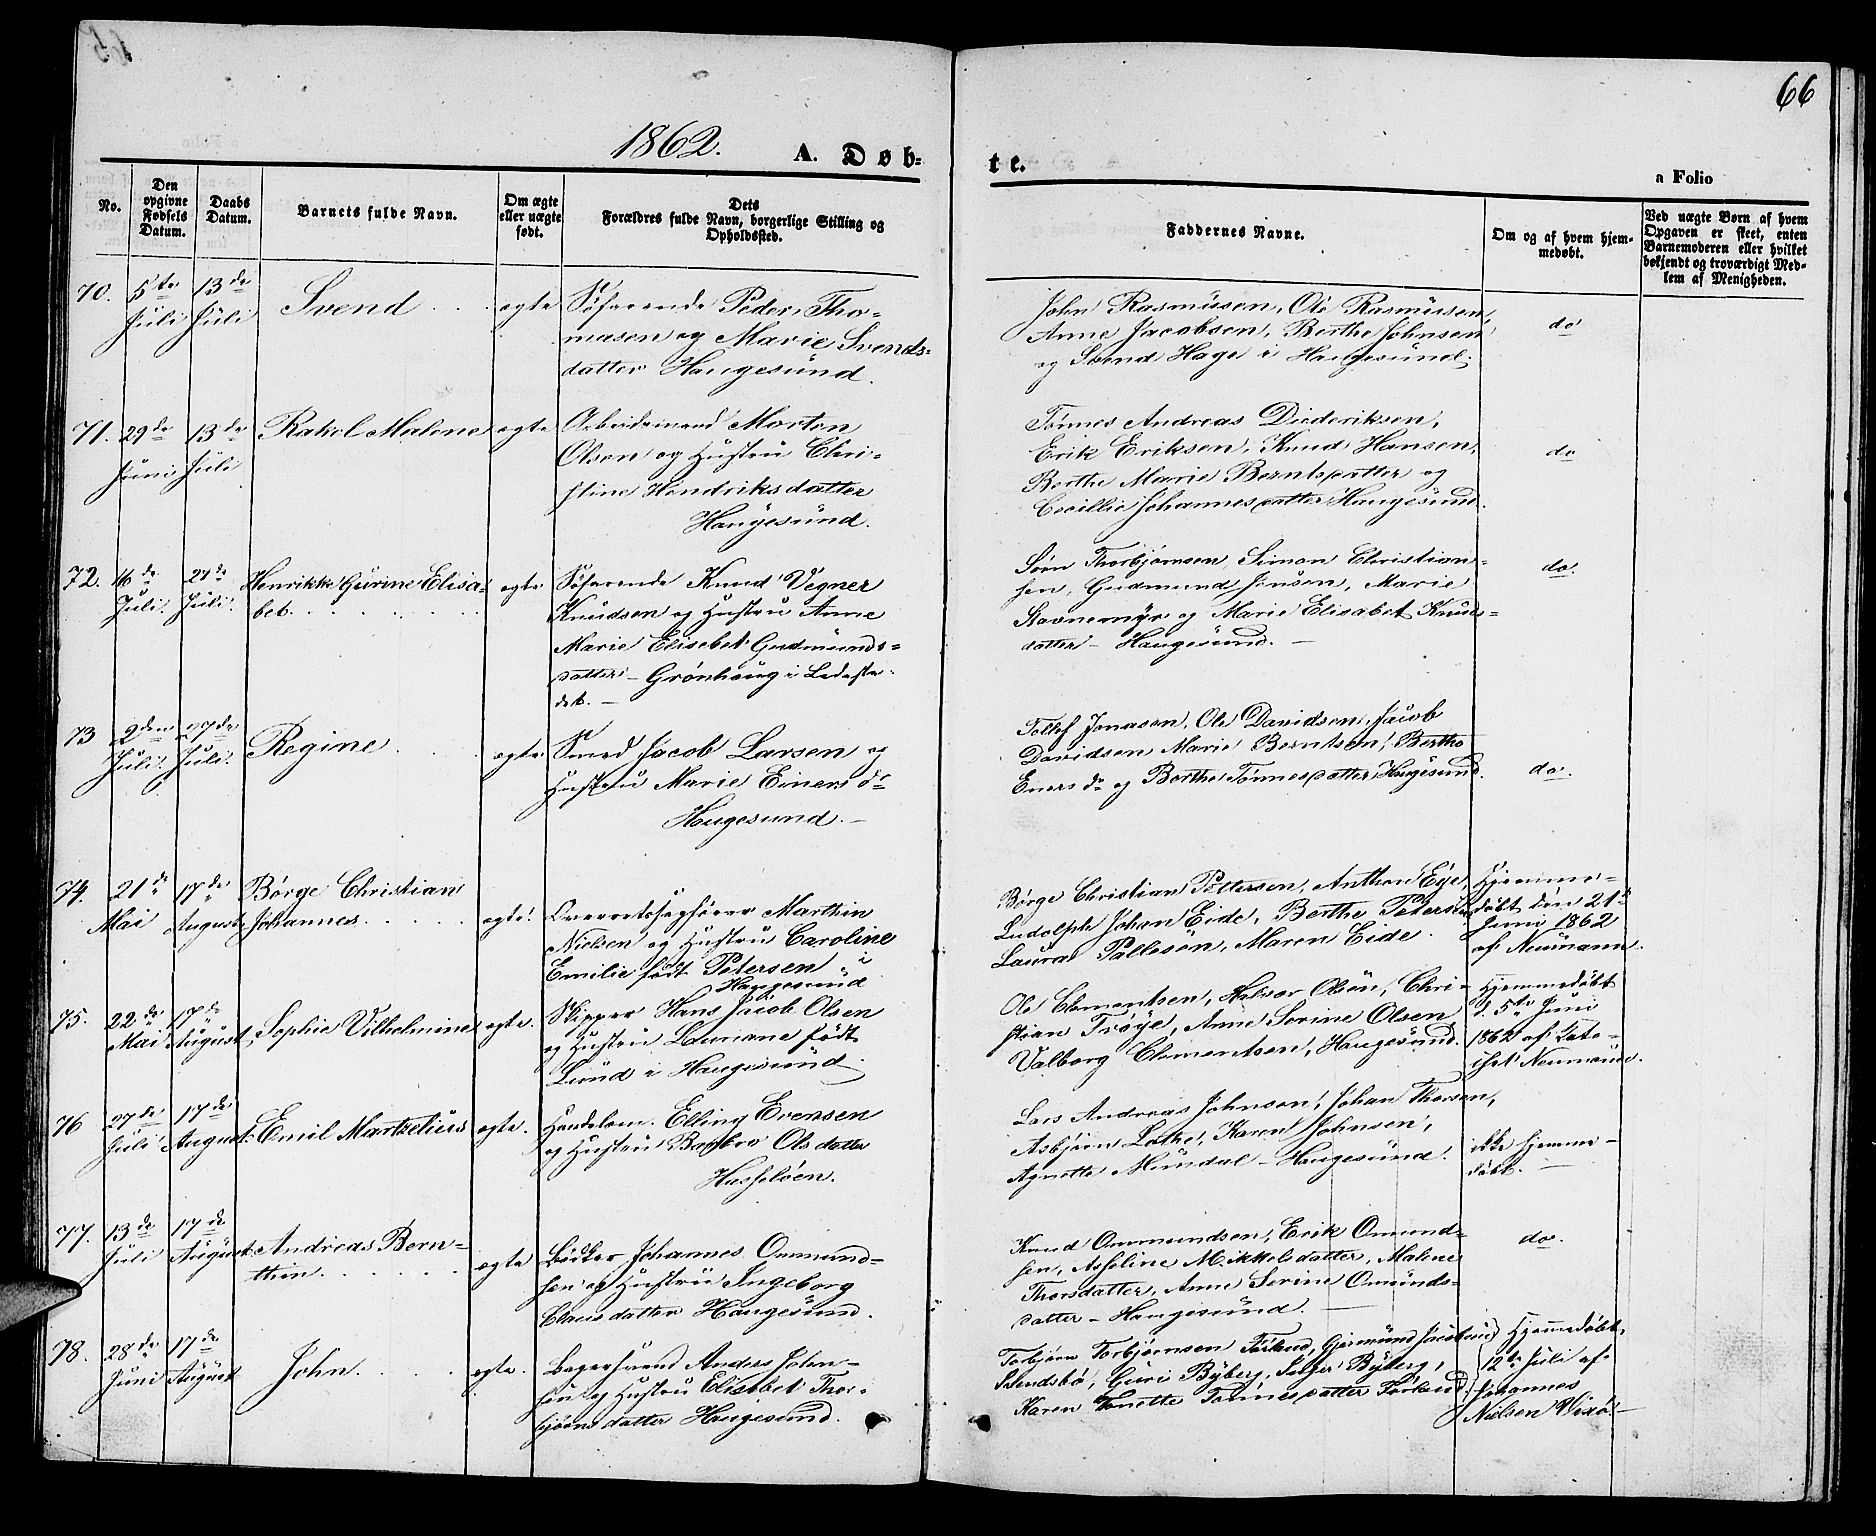 66
1862. A. Døb-
te.
a Folio
No.
Den opgivne Fødsels Datum.
Daabs Datum.
Barnets fulde Navn.
Om ægte eller uægte født.
Dets
Forældres fulde Navn, borgerlige Stilling og
Opholdssted.
Faddernes Navne.
Om og af hvem hjem-
medøbt.
Ved uægte Børn af hvem
Opgaven er skeet, enten
Barnemoderen eller hvilket
bekjendt og troværdigt Med-
lem af Menigheden.
70. 5te Juli 13de Juli Svend ægte
Søfarende Peder Tho-
masen og Marie Svends-
datter Haugesund.
John Rasmusen, Ole Rasmusen,
Anne Jacobsen, Berthe Johnsen
og Svend Hage i Haugesund.
do
71. 29de Juni 13de Juli Rakel Malene ægte
Arbeidsmand Morten
Olsen og Hustru Chri-
stine Hendriksdatter
Haugesund.
Tønnes Andreas Diederiksen,
Erik Eriksen, Knud Hansen,
Berthe Marie Berntsdatter og
Cecillie Johannesdatter Haugesund.
do
72. 16de Juli. 27de Juli. Henrikke Gurine Elisa-
bet. ægte
Søfarende Knud Vegner
Knudsen og Hustru Anne
Marie Elisebet Gudmunds-
datter – Grønhaug i Ladeste-
det. –
Sørn Thorbjørnsen, Simon Christian-
sen, Gudmund Jonsen, Marie
Stavnemyr og Marie Elisabet Knuds-
datter – Haugesund. –
do.
73 2den Juli. 27de Juli. Regine ægte
Smed Jacob Larsen og
Hustru Marie Einersdr
Haugesund. –
Tollef Jonasen, Ole Davidsen, Jacob
Davidsen Marie Berntsen, Berthe
Enersdr og Berthe Tønnesdatter Haugesund.
do.
74. 21de Mai 17de August Børge Christian
Johannes ægte.
Overretssagfører Marthin
Nielsen og Hustru Caroline
Emilie født Petersen i
Haugesund
Børge Christian Pettersen, Anthon Eye,
Ludolph Johan Eide, Berthe Petersen
Laura Pallesen, Maren Eide.
Hjemme-
døbt den 21de
Juni 1862
af Neumann.
75. 22de Mai 17de August Sophie Vilhelmine ægte.
Skipper Hans Jacob Olsen
og Hustru Lomane født
Lund i Haugesund
Ole Clementsen, Halvor Olsen, Chri-
stian Trøye, Anne Serine Olsen
Valborg Clementsen, Haugesund.
Hjemmedøbt
d. 5te Juni
1862 af Kate-
chet Neumann.
76 27de Juli 17de August. Emil Martzelius ægte.
Handelsm. Elling Evensen
og Hustru Brobro Olsdatter
Hasseløen.
Lars Andreas Johnsen, Johan Thorsen,
Asbjørn Lothe, Karen Johnsen,
Agnette Mundal – Haugesund.
ikke hjemme-
døbt. –
77. 13de Juli 17de August Andreas Bern-
thin ægte
Bødker Johannes Ommund-
sen og Hustru Ingeborg
Clausdatter Haugesund.
Knud Ommundsen, Erik Omund-
sen, Asseline Mikkelsdatter, Malene
Thorsdatter, Anne Serine Omunds-
datter – Haugesund. –
do.
78. 28de Juni 17de August John. ægte.
Bagersvend Anders John-
sen og Hustru Elisebet Thor-
bjørnsdatter Haugesund.
Torbjørn Torbjørnsen Førland, Gjermund Jacobsen
Svendsbø, Guri Byberg, Selger Byberg,
Karen Tonette Tønnesdatter Førland.
Hjemmedøbt,
12te Juli af
Johannes
Nielsen Vixø. –